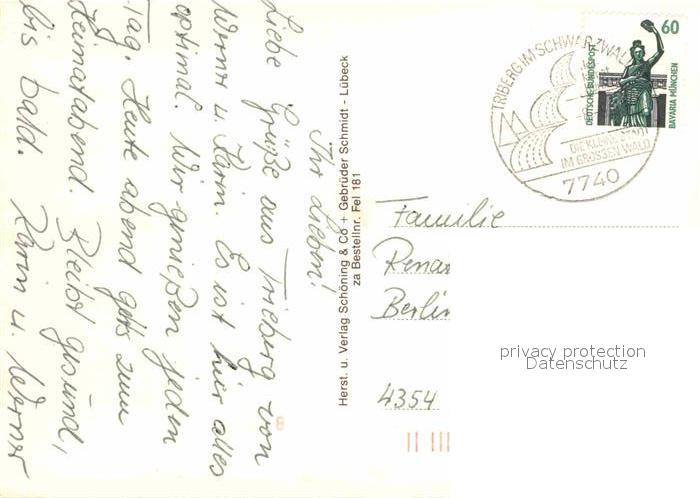 Ihr Lieben!
Liebe Grüße aus Trieberg von
Werner u. Karin. Es ist hier alles
optimal. Wir genießen jeden
Tag. Heute abend geht's zum
Heimatabend. Bleibt gesund,
bis bald. Karin u. Werner
Herst. u. Verlag Schöning & Co + Gebrüder Schmidt - Lübeck
za Bestellnr. Fel 181
TRIBERG IM SCHWARZWALD
DIE KLEINE STADT
IM GROSSEN WALD
7740
60
DEUTSCHE BUNDESPOST
BAVARIA MÜNCHEN
Familie
Renat
Berlin
4354
privacy protection
Datenschutz